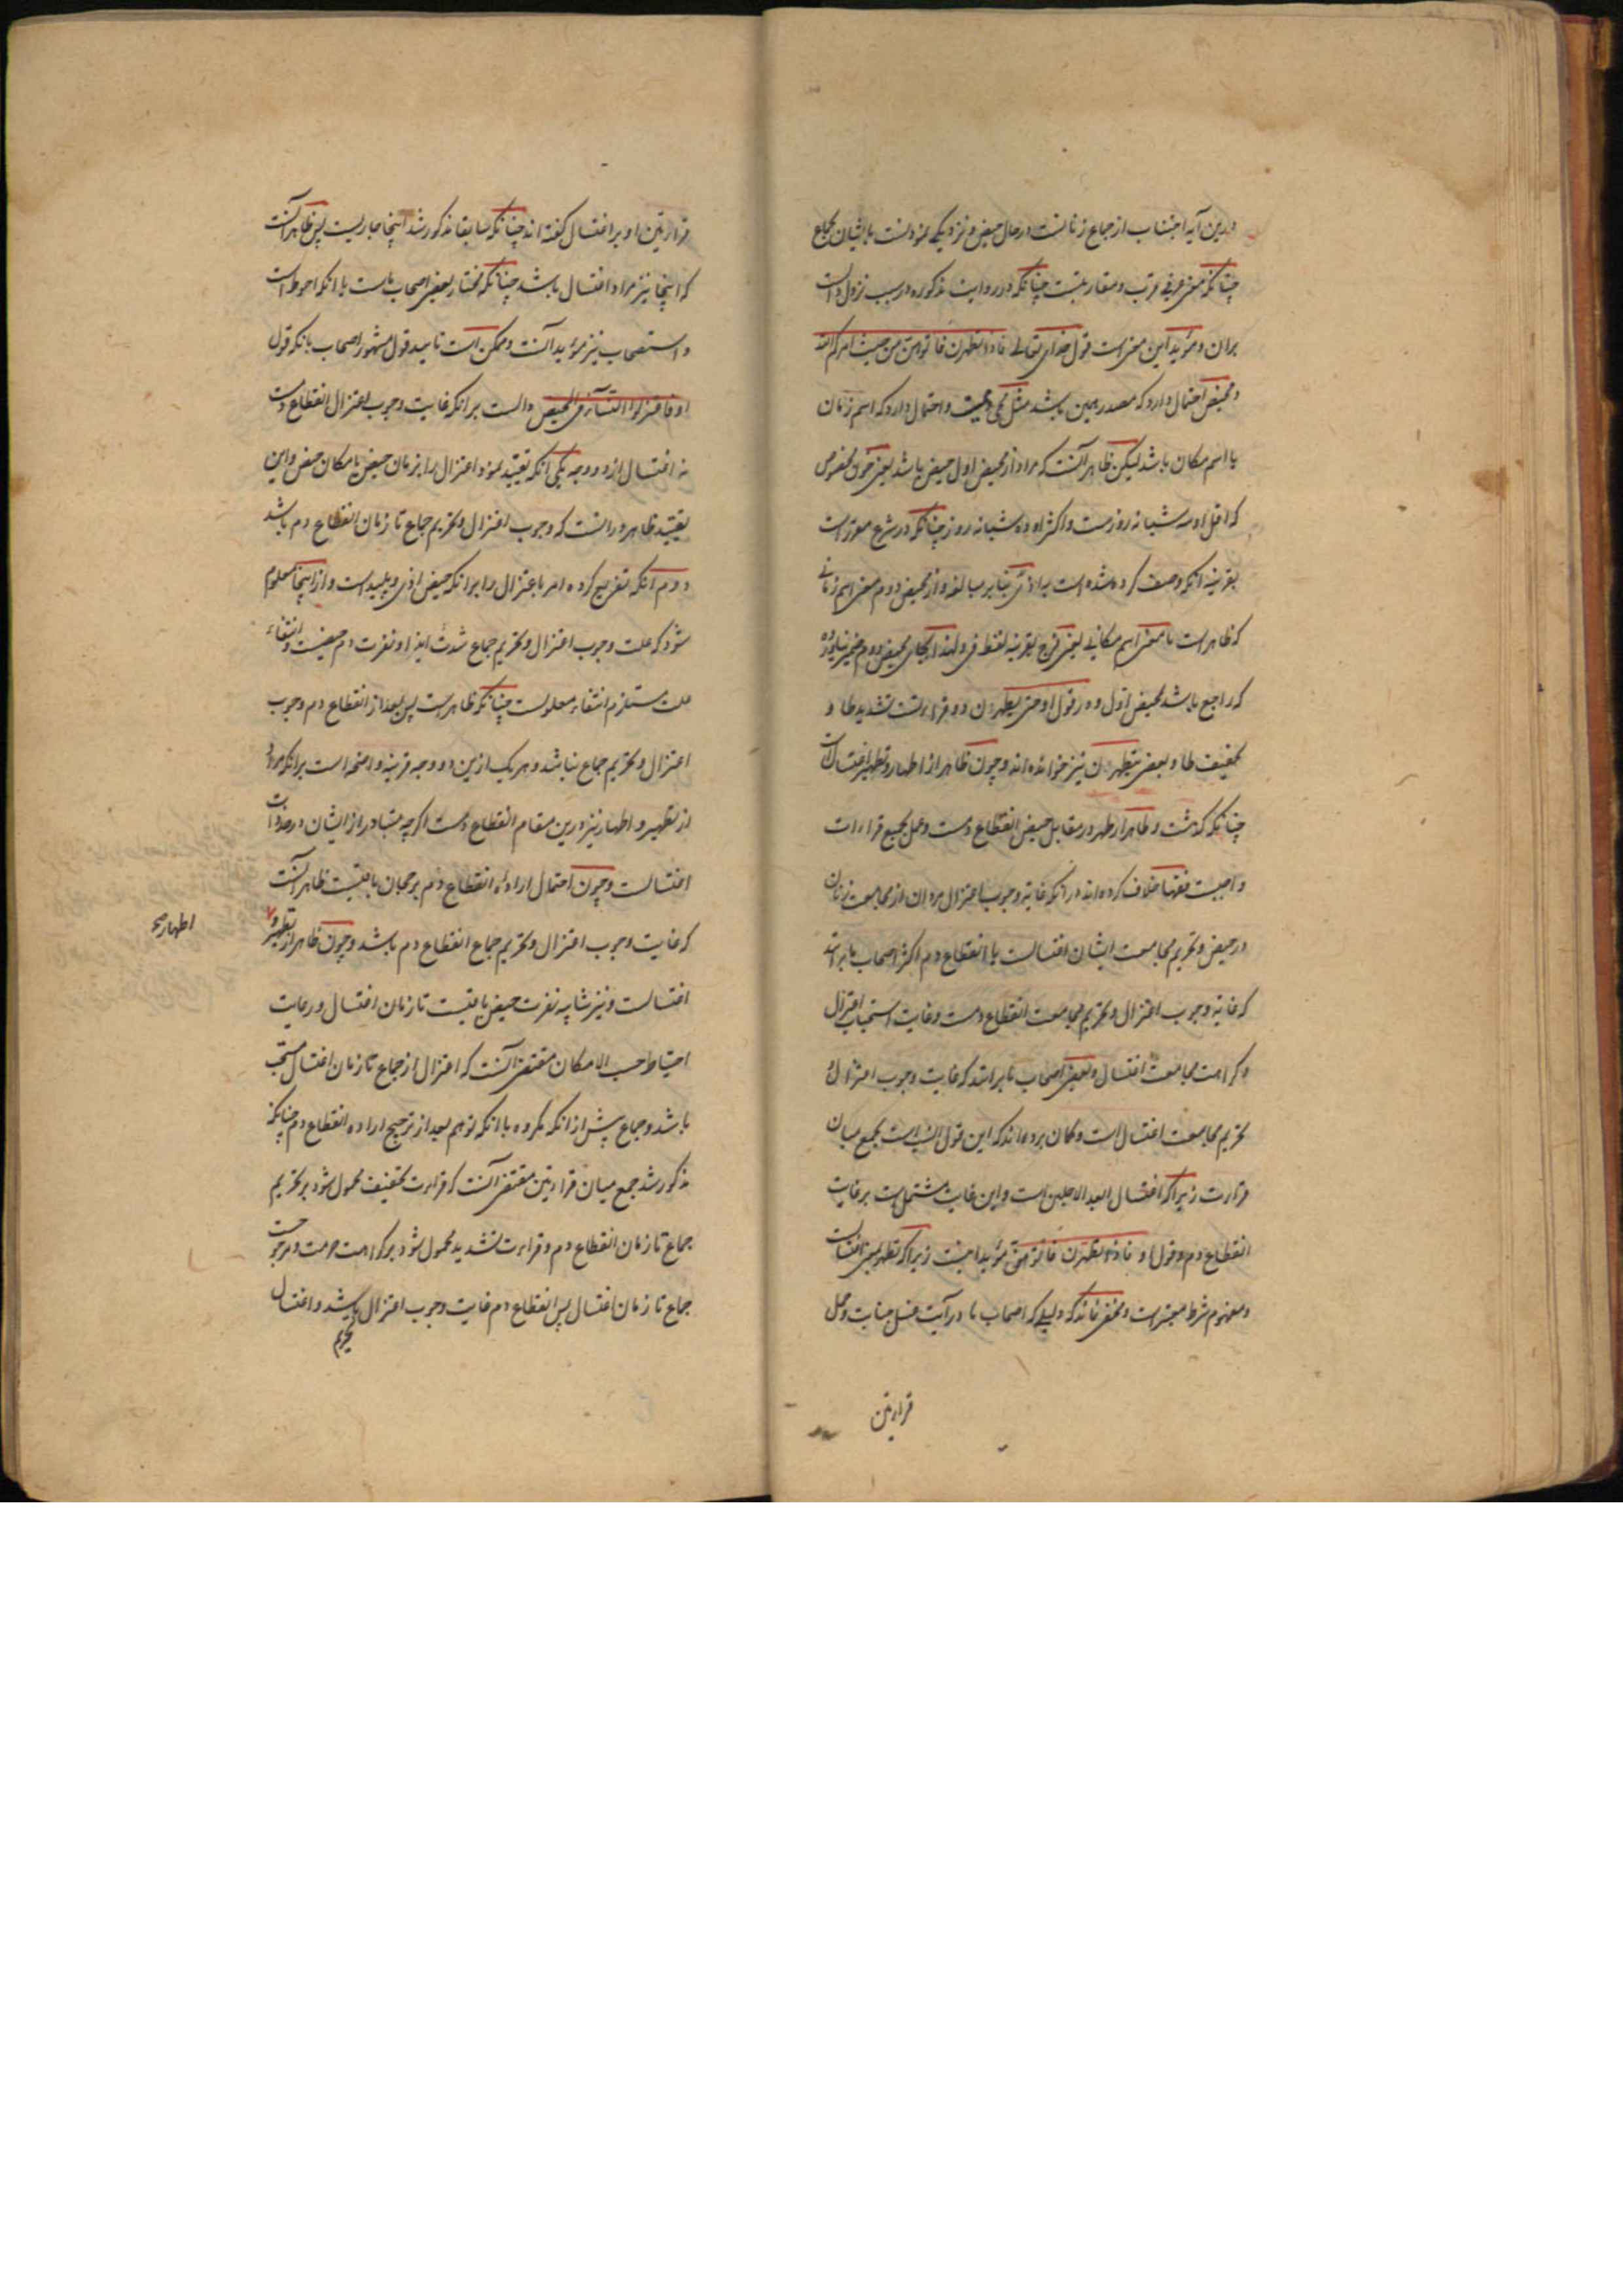 درین آیه اجتناب از جماع زنانست در حال حیض و نزدیکی نمودنست بایشان بجماع
چنانکه معنی عرفی قرب و مقاربتست چنانکه در روایت مذکوره در سبب نزول دالست
بران و مؤید این معنی است قول خدای تعالی فاذا تطهرن فاتوهن من حیث امرکم الله
و محیض احتمال دارد که مصدر میمی باشد مثل مجی و مبیت و احتمال دارد که اسم زمان
یا اسم مکان باشد لیکن ظاهر آنست که مراد از محیض اول حیض باشد یعنی خون مخصوص
که اقل او سه شبانه روزست و اکثر او ده شبانه روز چنانکه در شرع مقررست
بقرینه آنکه وصف کرده شده است به اذی بنابر مبالغه و از محیض دوم معنی اسم زمانی
که ظاهر است یا معنی اسم مکانی یعنی فرج بقرینه لفظ فی و لهذا بجای محیض دوم ضمیر نیاورده
که راجع باشد بمحیض اول و در قول او حتی یطهرن دو قراءتست تشدید طا و
تخفیف طا و بعضی یتطهرن نیز خوانده اند و چون ظاهر از اطهار و تطهیر اغتسالست
چنانکه گذشت و ظاهر از طهر در مقابل حیض انقطاع دمست و عمل بجمیع قراءات
واجبست فقها خلاف کرده اند در آنکه غایة وجوب اعتزال مردان از مجامعت زنان
در حیض و تحریم مجامعت ایشان اغتسالست یا انقطاع دم اکثر اصحاب ما برانند
که غایة وجوب اعتزال و تحریم مجامعت انقطاع دمست و غایت استحباب اعتزال
و کراهت مجامعت اغتسال و بعضی اصحاب ما برانند که غایت وجوب اعتزال و
تحریم مجامعت اغتسال است و گمان برده اند که این قول انسب است بجمع میان
قراءت زیرا که اغتسال ابعد الاجلین است و این غایت مشتملست بر غایت
انقطاع دم و قول او فاذا تطهرن فاتوهن مؤید اینست زیرا که تطهر بمعنی اغتسالست
و مفهوم شرط معتبرست و مخفی نماند که دلیلی که اصحاب ما در آیت غسل جنابت و حمل
قراءتین
قراءتین او بر اغتسال گفته اند چنانکه سابقا مذکور شد اینجا جاریست پس ظاهر آنست
که اینجا نیز مراد اغتسال باشد چنانکه مختار بعضی اصحاب ماست با آنکه احوط است
و استصحاب نیز مؤید آنست و ممکن است تایید قول مشهور اصحاب بانکه قول
او فاعتزلوا النساء فی المحیض دالست برانکه غایت وجوب اعتزال انقطاع دمست
نه اغتسال از دو وجه یکی آنکه تقیید نمود اعتزال را بزمان حیض یا مکان حیض و این
تقیید ظاهر در آنست که وجوب اعتزال و تحریم جماع تا زمان انقطاع دم باشد
دوم آنکه تفریع کرده امر باعتزال را برانکه حیض اذی و پلید است و از اینجا معلوم
شود که علت وجوب اعتزال و تحریم جماع شدت ایذا و نفرت دم حیضست و انتفاء
علت مستلزم انتفاء معلولست چنانکه ظاهرست پس بعد از انقطاع دم وجوب
اعتزال و تحریم جماع نباشد و هر یک ازین دو وجه قرینه واضحه است برانکه مراد
از تطهیر و اطهار نیز درین مقام انقطاع دمست اگرچه متبادر از ایشان در حد ذات
اغتسالست و چون احتمال اراده انقطاع دم برجحان باقیست ظاهر آنست
که غایت وجوب اعتزال و تحریم جماع انقطاع دم باشد و چون ظاهر از تطهیر و
اطهار صح
اغتسالست و نیز شایبه نفرت حیض باقیست تا زمان اغتسال و رعایت
احتیاط حسب الامکان مقتضی آنست که اعتزال از جماع تا زمان اغتسال مستحب
باشد و جماع پیش از آنکه مکروه با آنکه توهم بعد از ترجیح اراده انقطاع دم چنانکه
مذکور شد جمع میان قراءتین مقتضی آنست که قراءت تخفیف محمول شود بر تحریم
جماع تا زمان انقطاع دم و قراءت تشدید محمول شود بر کراهت و مرجوحیت
جماع تا زمان اغتسال پس انقطاع دم غایت وجوب اعتزال باشد و اغتسال
تحریم